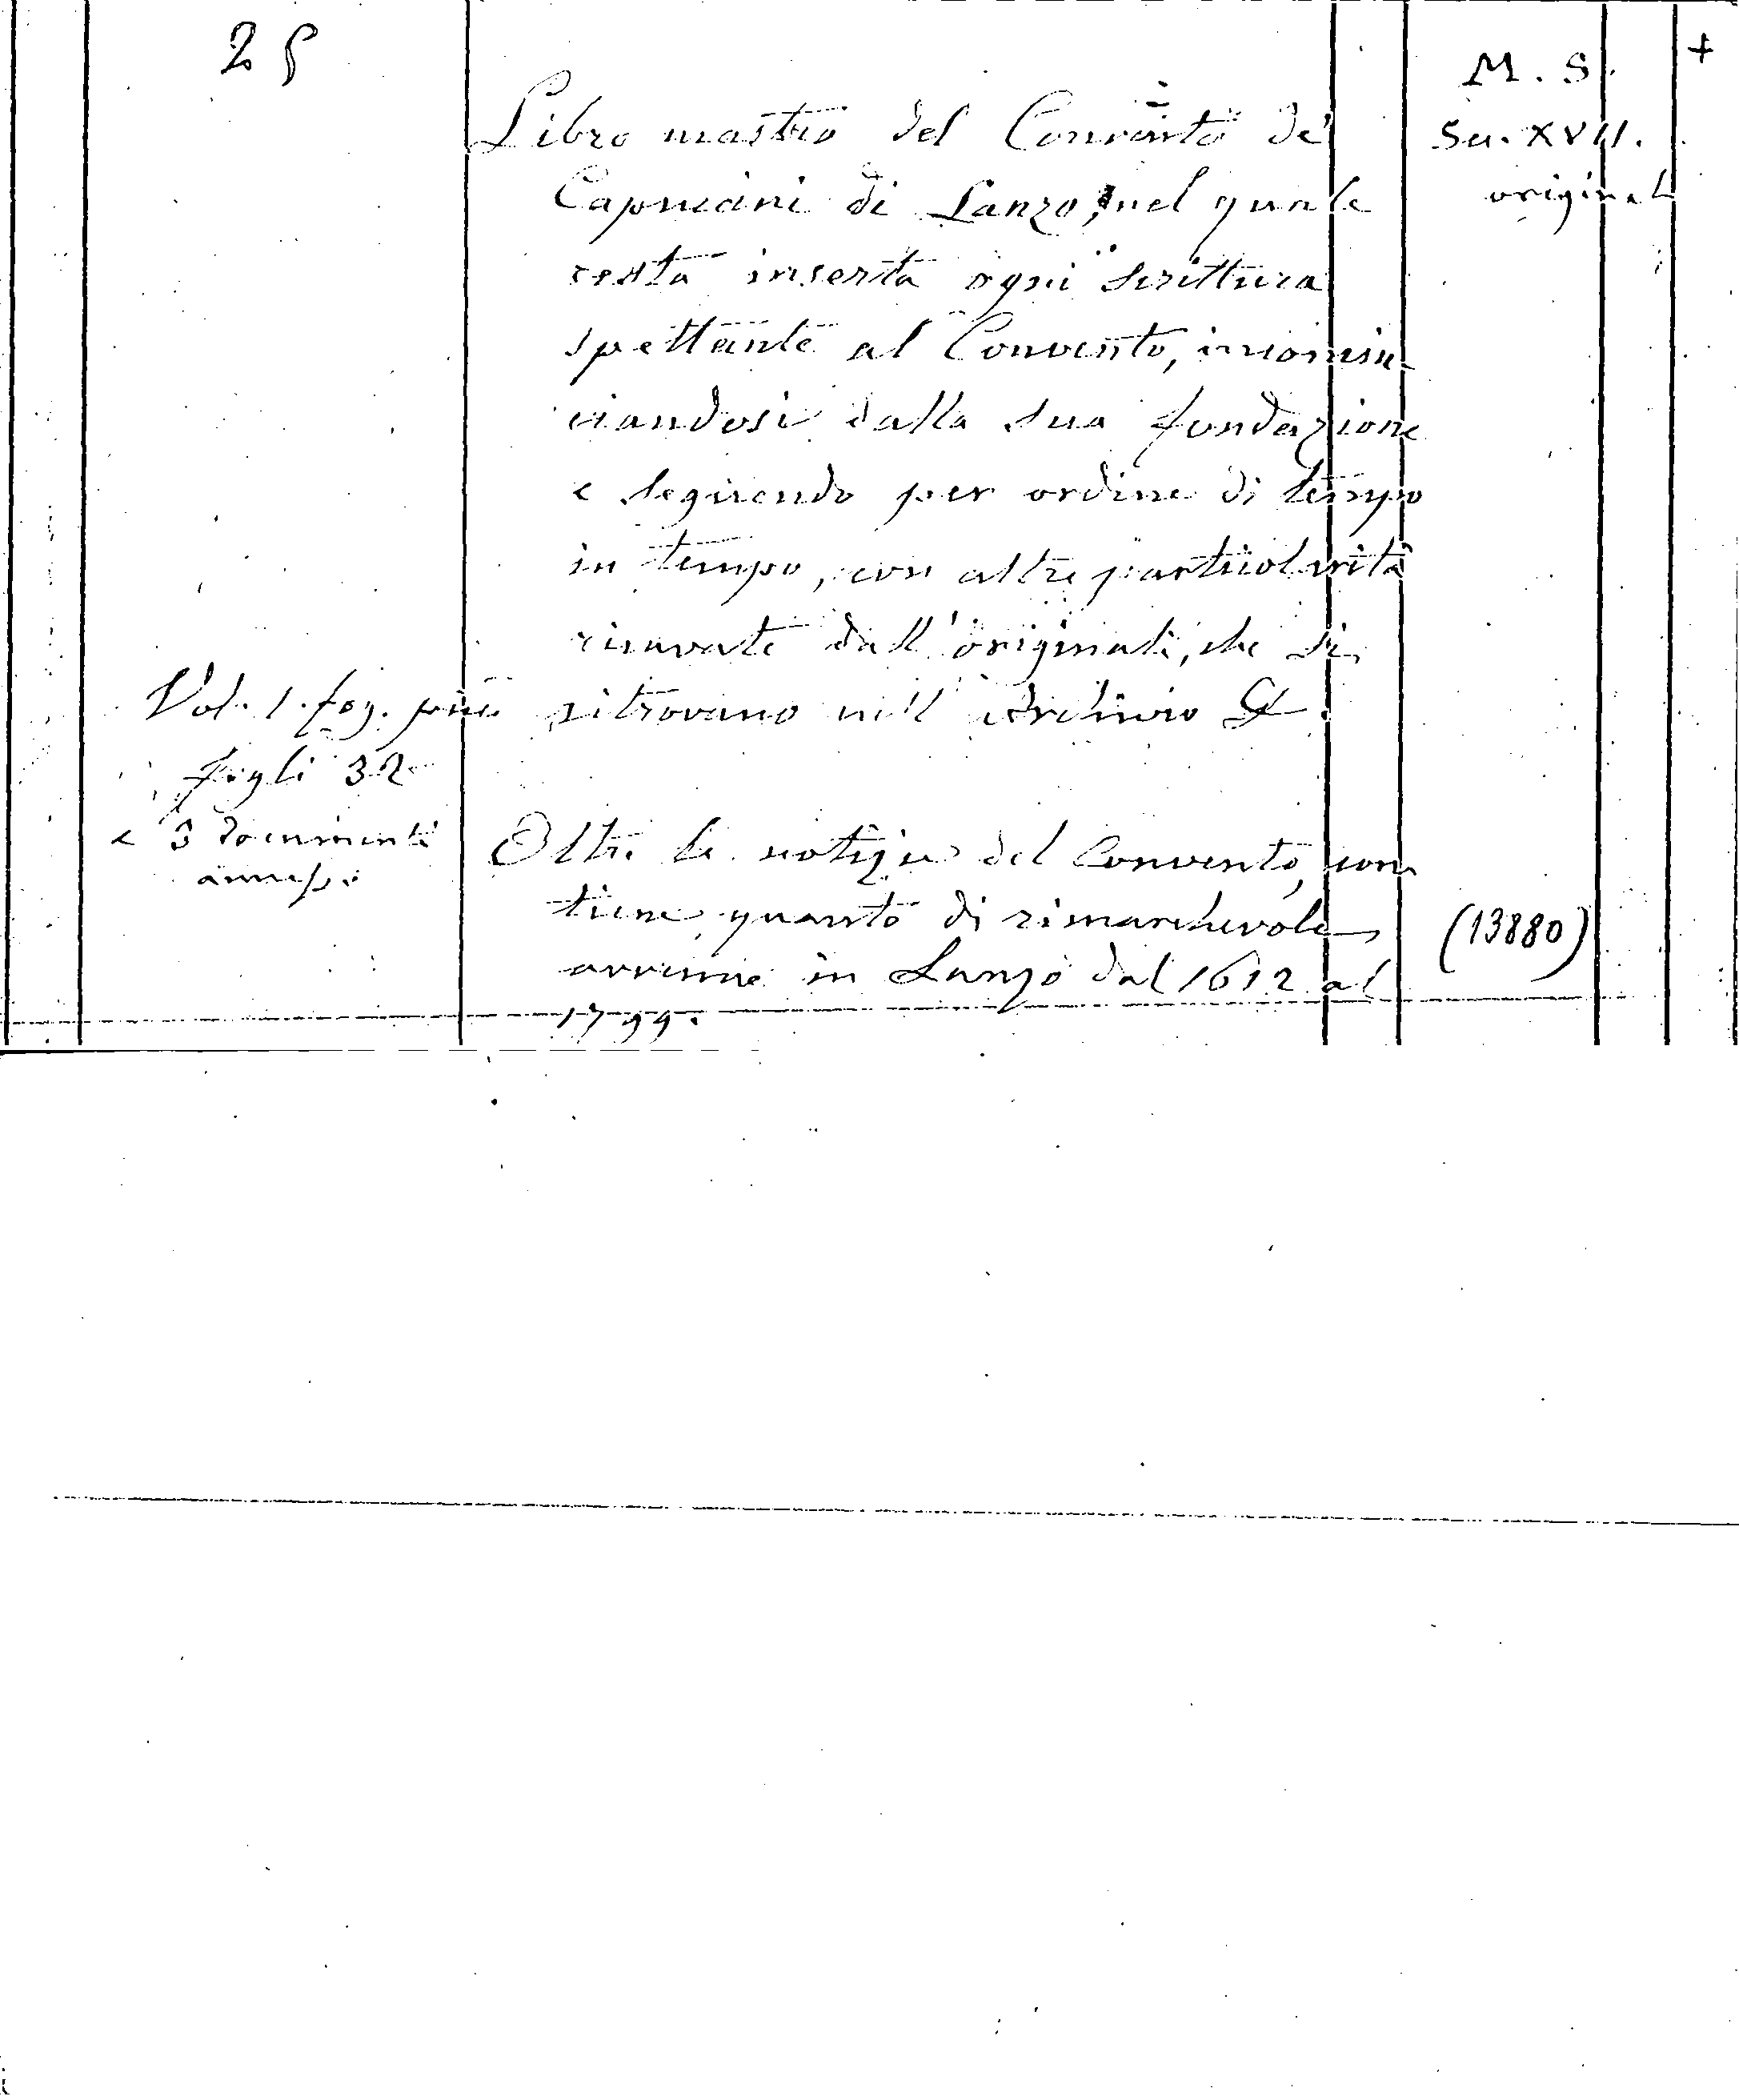 25
Libro mastro del Convento de'
Capuccini di Lanzo, nel quale
resta inserta ogni scrittura
spettante al Convento, incomin
ciandosi dalla sua fondazione
e seguendo per ordine di tempo
in tempo, con altre particolarità
ricavate dall'originali, che si
ritrovano nell'archivio
Vol. 1. fog. più
fogli 32
e 3 documenti
annessi
Oltre le notizie del Convento, con
tiene quanto di rimarchevole
avvenne in Lanzo dal 1612 al
1799.
M. S.
Sec. XVII.
original
+
(13880)